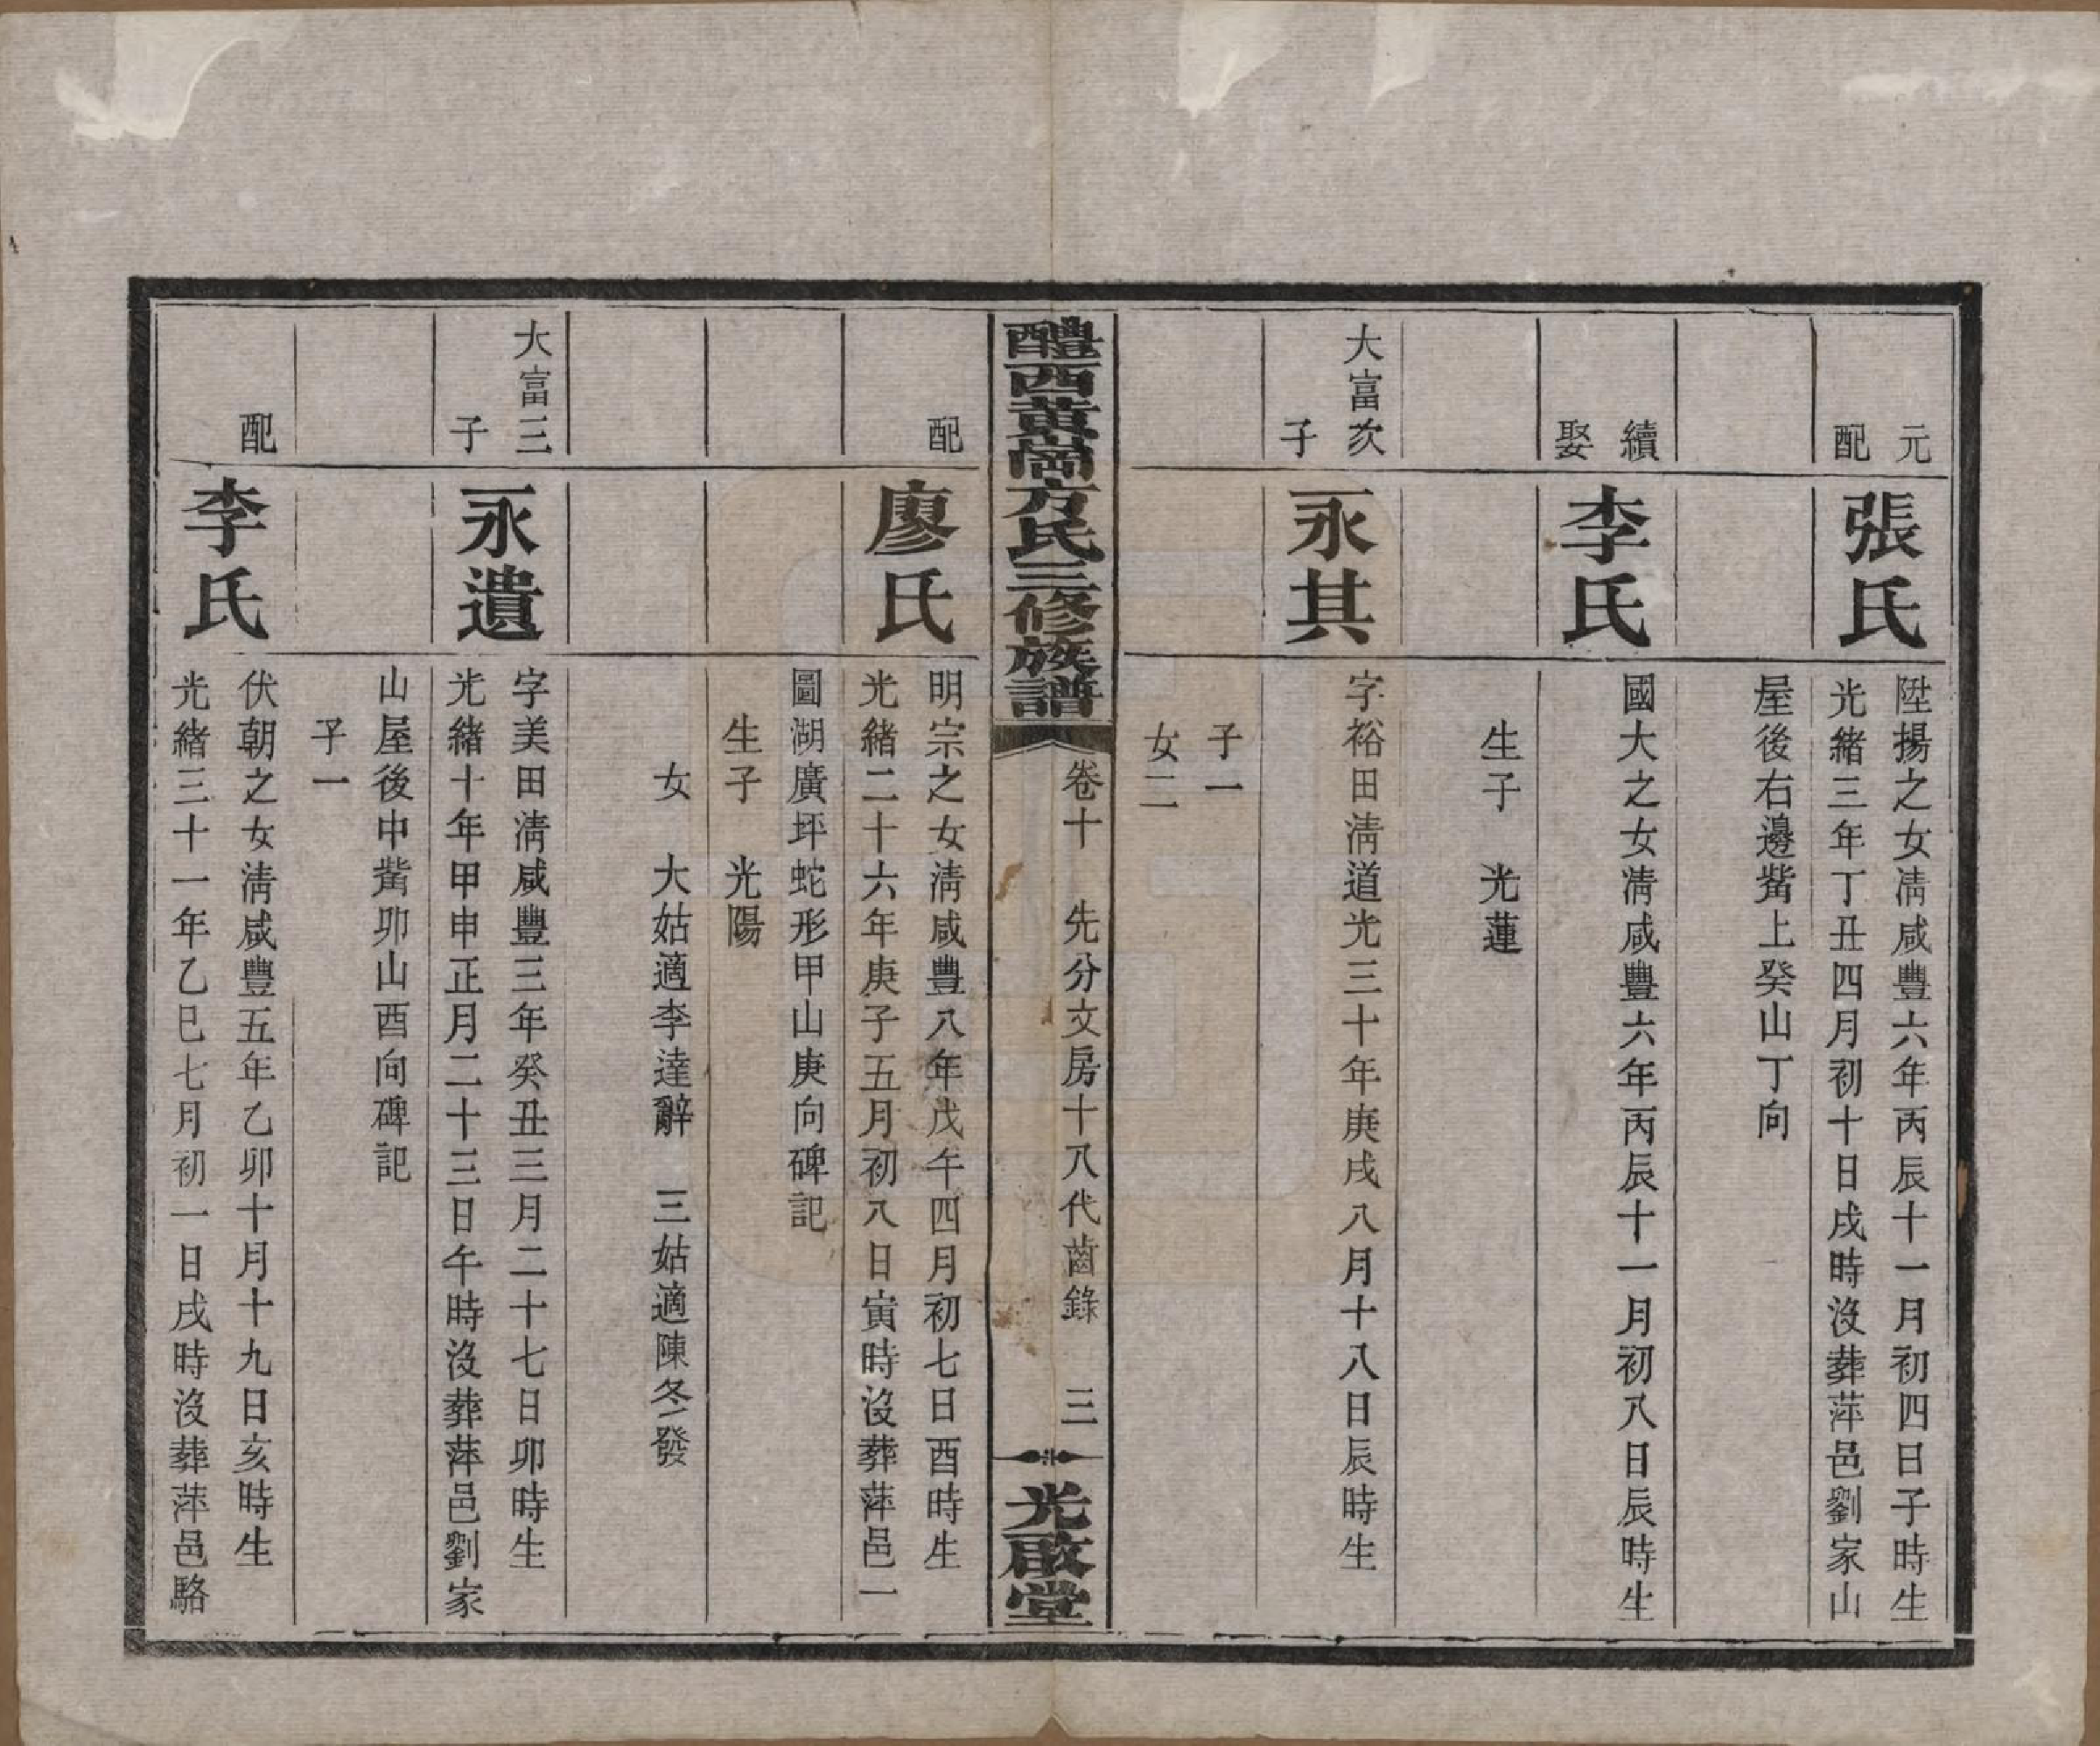 元
配
張氏
陞揚之女清咸豐六年丙辰十一月初四日子時生
光緒三年丁丑四月初十日戌時沒葬萍邑劉家山
屋後右邊觜上癸山丁向
續
娶
李氏
國大之女清咸豐六年丙辰十一月初八日辰時生
生子　光蓮
大富次
子
永其
字裕田清道光三十年庚戌八月十八日辰時生
子一
女二
醴西黃崗方氏三修族譜
卷十　先分文房十八代齒錄　三
光啟堂
配
廖氏
明宗之女清咸豐八年戊午四月初七日酉時生
光緒二十六年庚子五月初八日寅時沒葬萍邑一
圖湖廣坪蛇形甲山庚向碑記
生子　光陽
女　大姑適李達辭　三姑適陳冬發
大富三
子
永遺
字美田清咸豐三年癸丑三月二十七日卯時生
光緒十年甲申正月二十三日午時沒葬萍邑劉家
山屋後中觜卯山酉向碑記
子一
配
李氏
伏朝之女清咸豐五年乙卯十月十九日亥時生
光緒三十一年乙巳七月初一日戌時沒葬萍邑駱